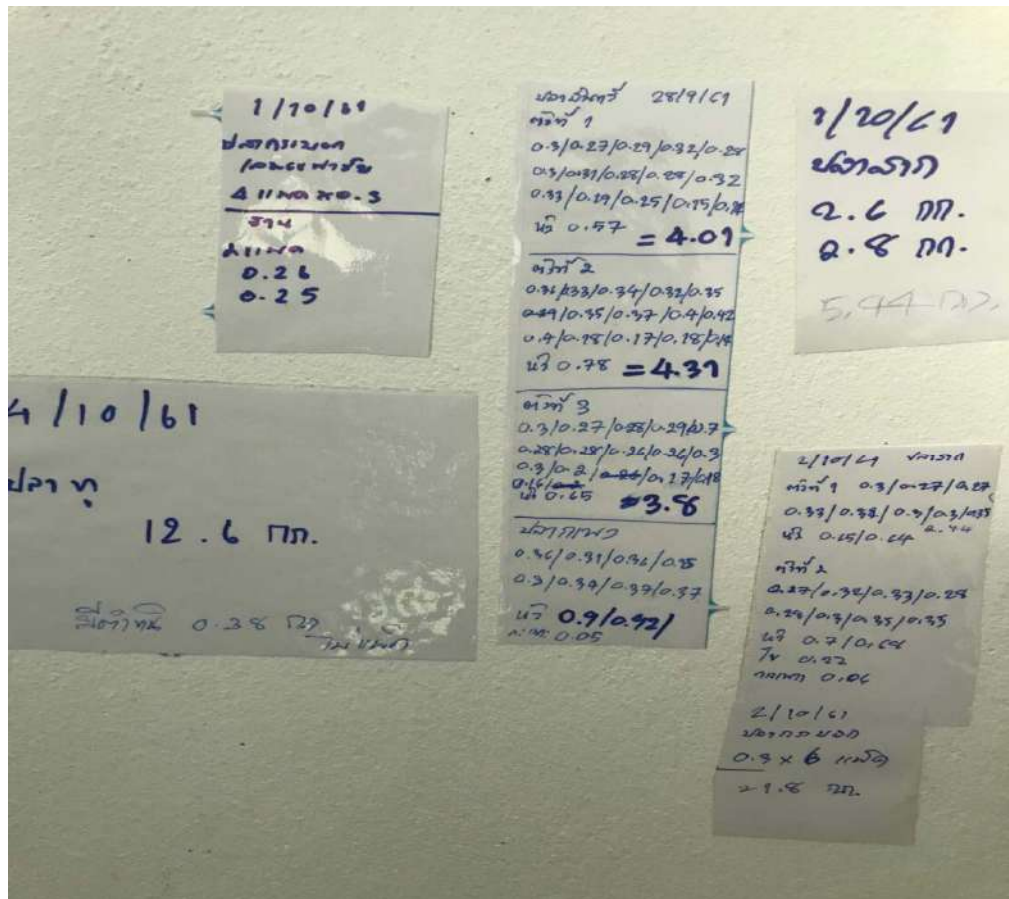 1/10/61
ปลากระบอก
4 แพค x 0.3
ร้าน
2 แพค
0.26
0.25
4/10/61
ปลาทู
12.6 กก.
มีตำหนิ 0.38 กก
ปลาอินทรี 28/9/61
ตัวที่ 1
0.3/0.27/0.29/0.32/0.28
0.3/0.31/0.28/0.28/0.32
0.33/0.19/0.25/0.15/
หัว 0.57 = 4.01
ตัวที่ 2
0.36/0.33/0.34/0.32/0.35
0.35/0.37/0.4/0.42
0.4/0.18/0.17/0.18/
หัว 0.78 = 4.31
ตัวที่ 3
0.3/0.27/0.28/0.29/
0.28/0.28/0.26/0.26/0.3
0.3/0.2/0.17/0.18
หัว 0.65 = 3.8
ปลากุเพา
0.36/0.31/0.36/0.35
0.3/0.34/0.39/0.37
หัว 0.9/0.92/
0.05
1/10/61
ปลาสาก
2.6 กก.
2.8 กก.
5.44 กก.
2/10/61 ปลาสาก
ตัวที่ 1 0.3/0.27/0.27
0.33/0.32/0.3/0.3/0.35
หัว 0.65/0.64 2.44
ตัวที่ 2
0.27/0.32/0.33/0.28
0.29/0.3/0.35/0.35
หัว 0.7/0.68
ไข 0.22
0.06
2/10/61
ปลากระบอก
0.3 x 6 แพ็ค
= 1.8 กก.